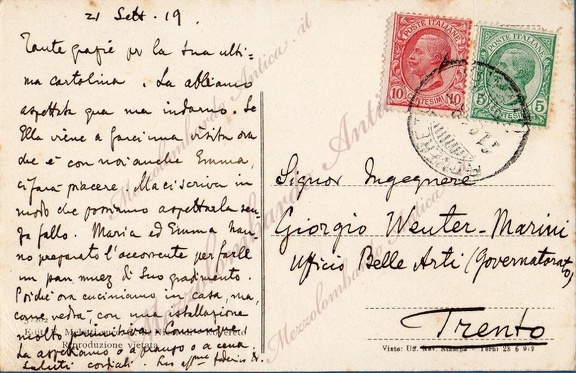 21 Sett. 19.
Tante grazie per la sua ulti-
ma cartolina. La abbiamo
aspettata qua ma indarno. Se
Ella viene a farci una visita ora
che è con noi anche Emma,
ci farà piacere. Ma ci scriva in
modo che possiamo aspettarla sen-
za fallo. Maria ed Emma han-
no preparato l'occorrente per farle
un pan muez di Suo gradimento.
Poichè ora cuciniamo in casa, ma,
come vedrà, con una istallazione
molto primitiva. Comunque
La aspettiamo o a pranzo o a cena
Saluti cordiali.
Riproduzione vietata
POSTE ITALIANE
10 CENTESIMI 10
POSTE ITALIANE
5 CENTESIMI 5
Signor Ingegnere
Giorgio Wenter-Marini
Ufficio Belle Arti (Governatorato)
Trento
Visto: Uff. Rev. Stampa - Torni 28 6 919
Mezzolombardo Antica.it
Mezzolombardo Antica.it